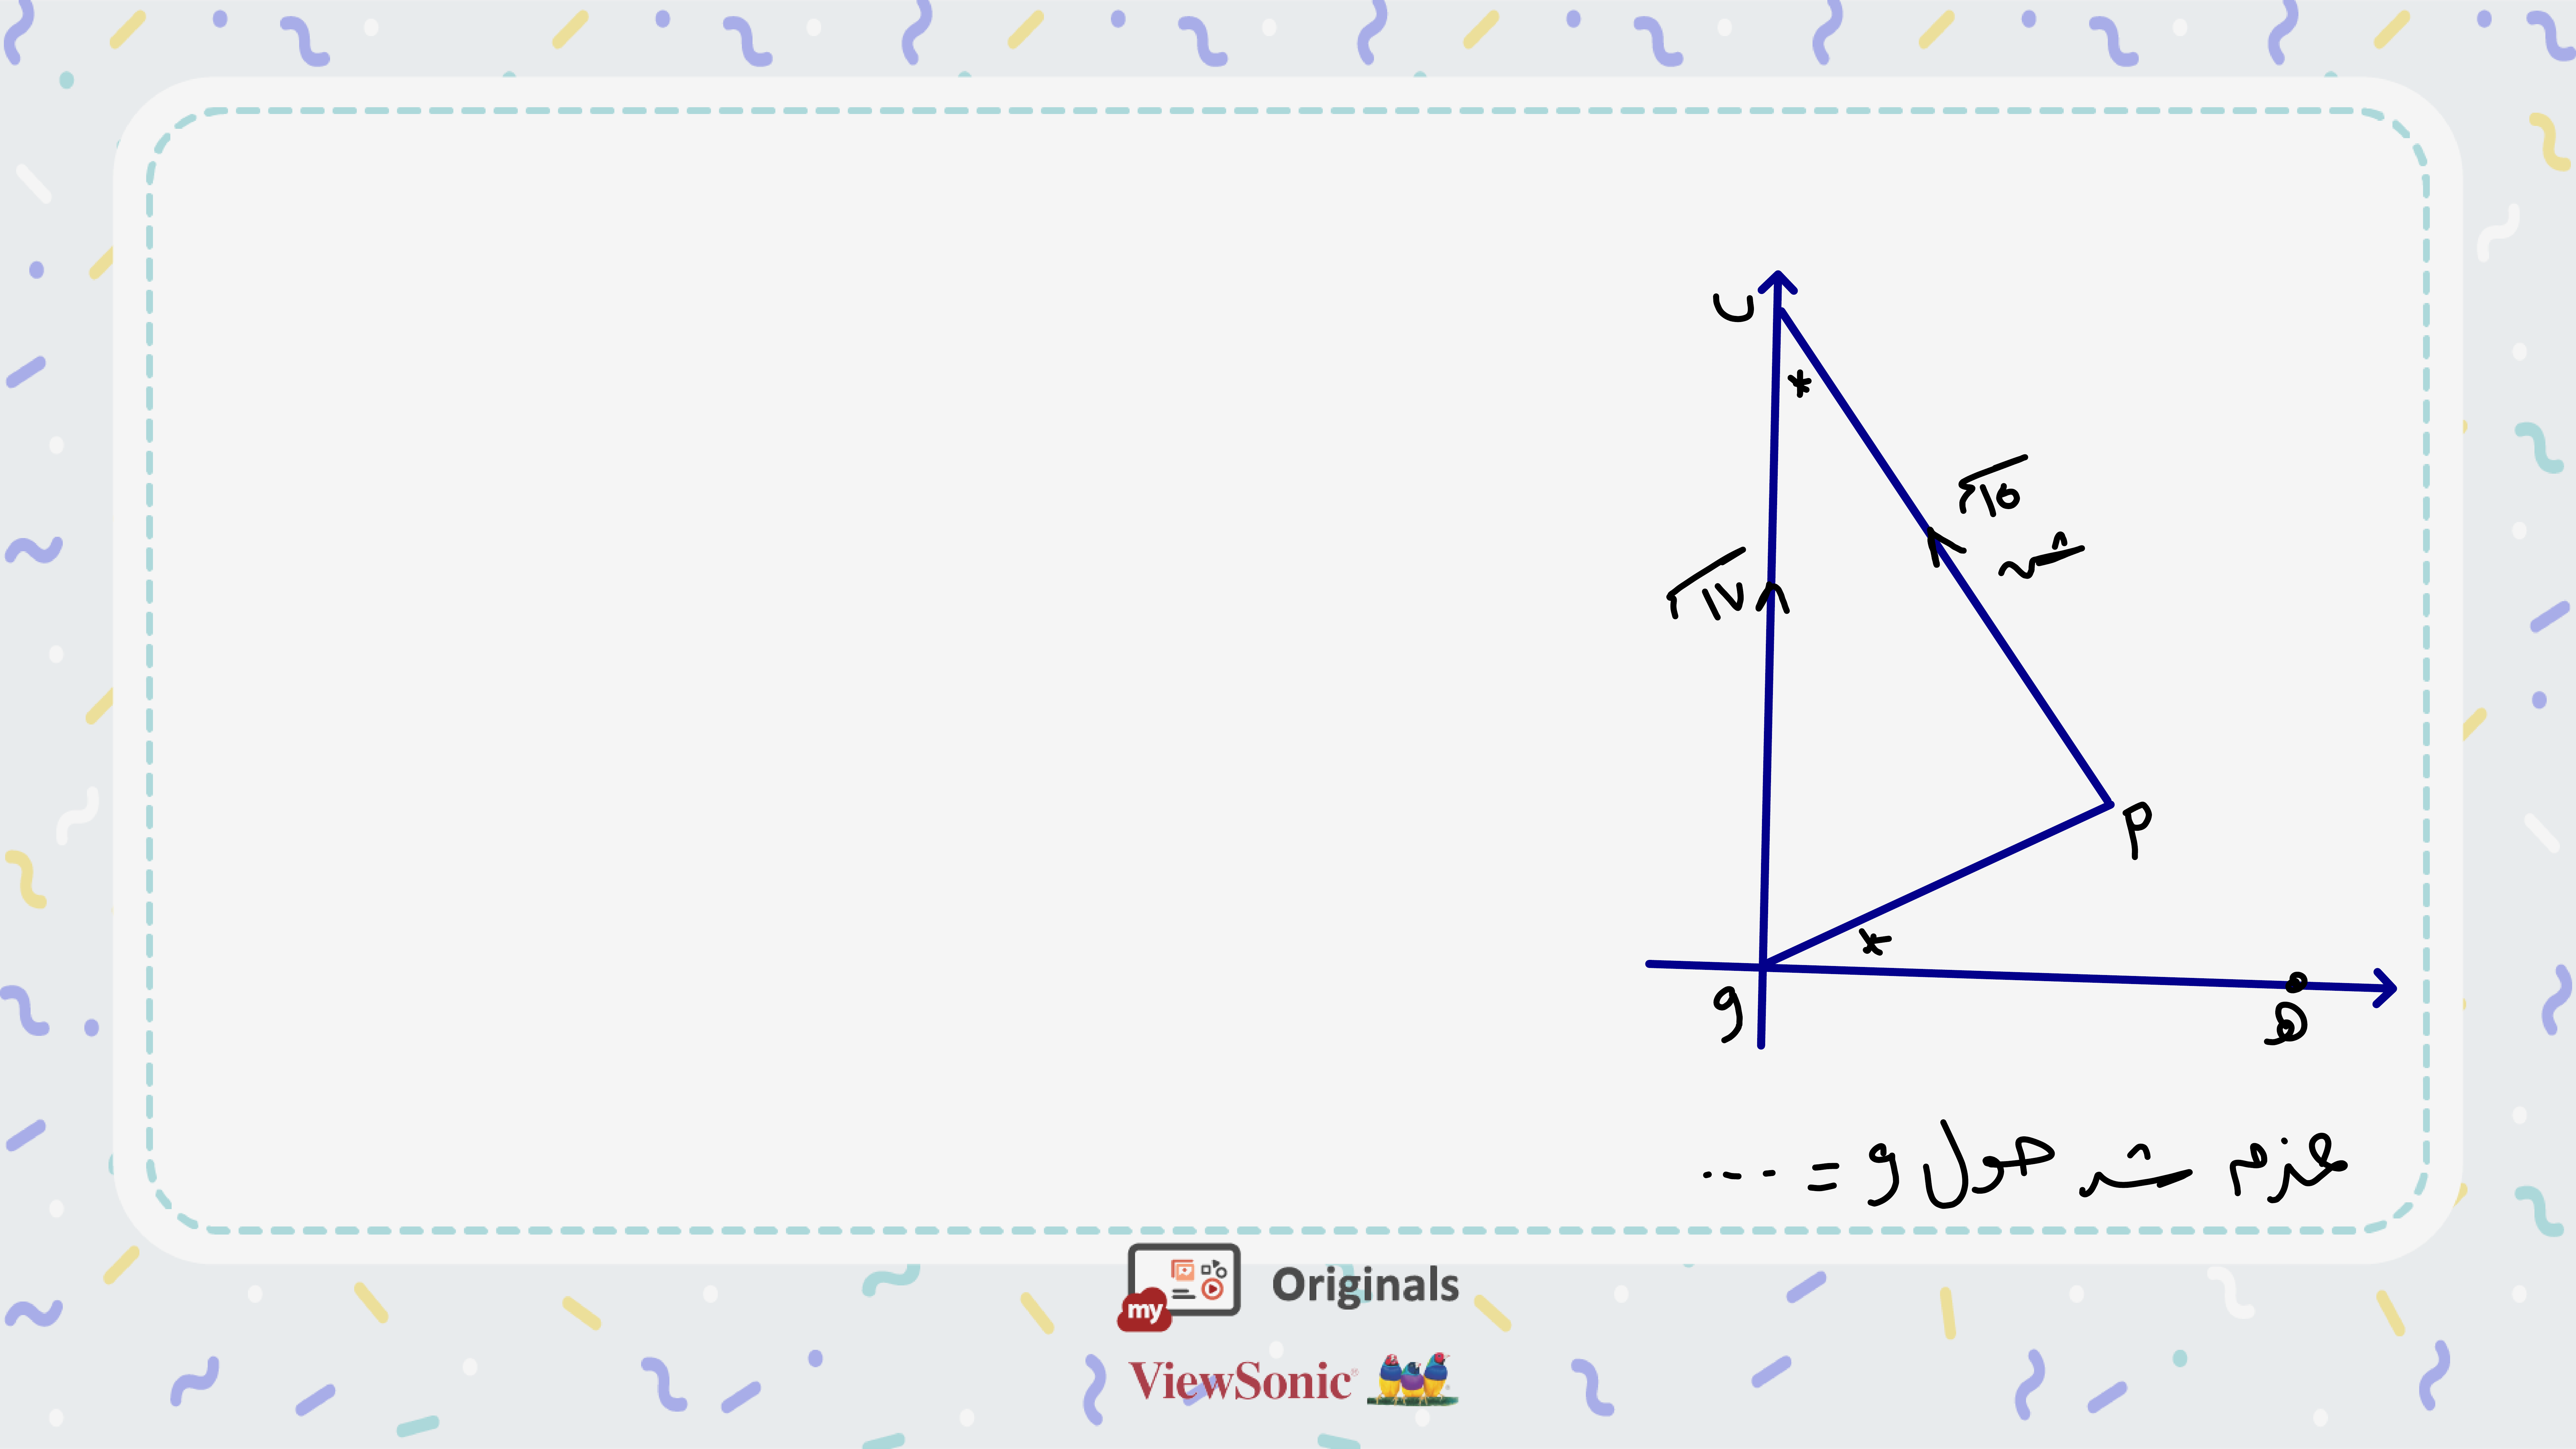 ب
*
√١٥
ش
√١٧
م
*
و
ه
عزم ش حول و = ...
my Originals
ViewSonic